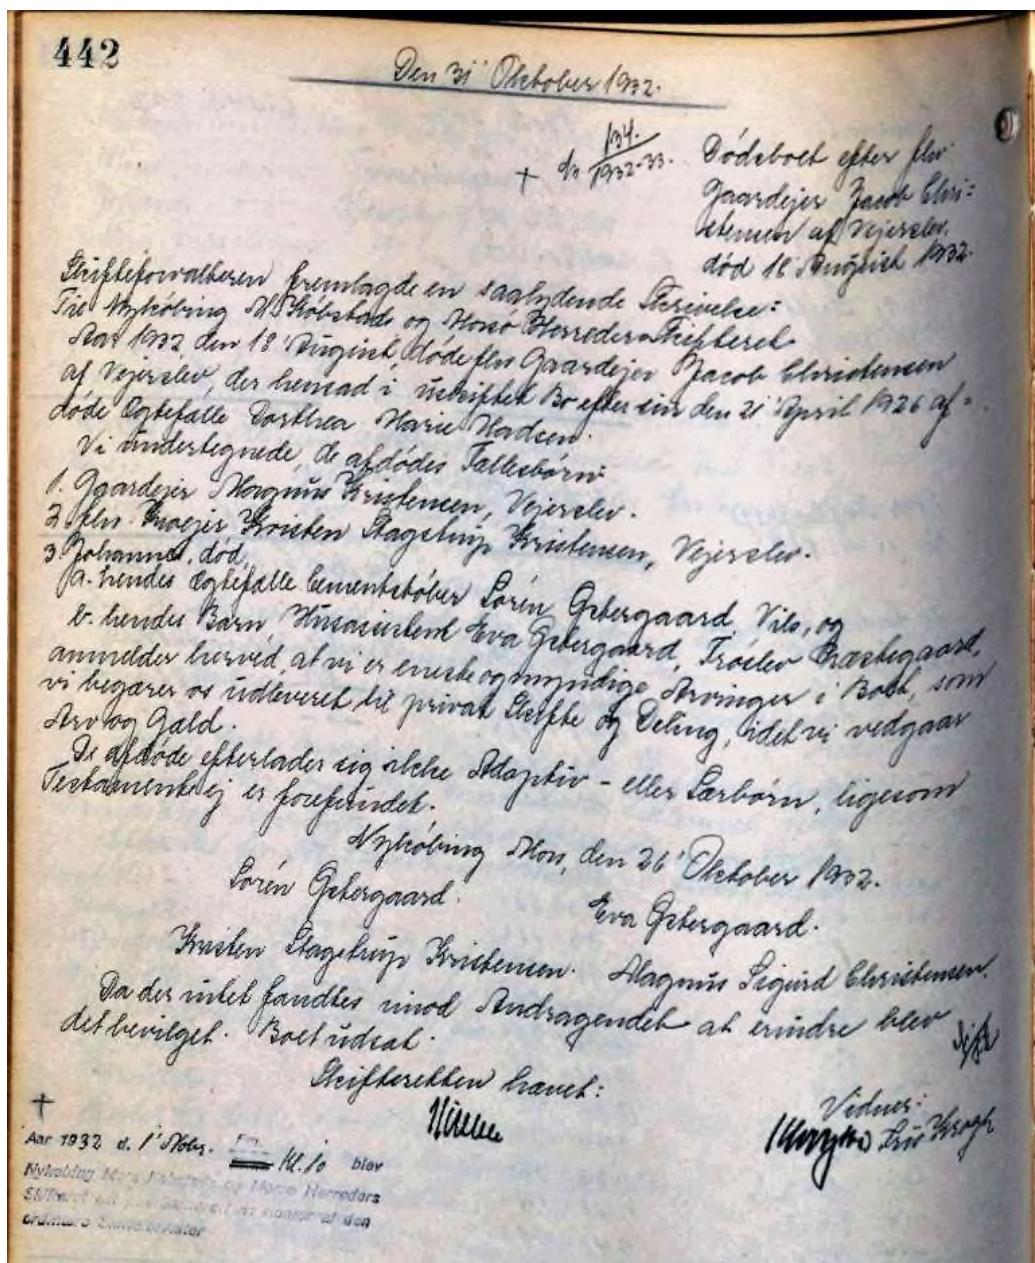 442
Den 31' Oktober 1932.
134.
1932-33.
Dödsboet efter fhv
Gaardejer Jacob Chri=
stensen af Vejerslev,
död 18 August 1932.
Skifteforvalteren fremlagde en saalydende Skrivelse:
Til Nykøbing M. Købstads og Morsö Herreders Skifteret
Aar 1932 den 18' August döde fhv Gaardejer Jacob Christensen
af Vejerslev, der hensad i uskiftet Bo efter sin den 21' April 1926 af=
döde Ægtefælle Dorthea Marie Madsen.
Vi undertegnede, de afdödes Fællesbörn:
1. Gaardejer Magnus Kristensen, Vejerslev.
2 fhv. Kristen Stagstrup Kristensen, Vejerslev.
3 Johanne, död,
a. hendes Ægtefælle Cementstöber Sören Østergaard, Vils, og
b. hendes Barn, Husassistent Eva Østergaard, Fröslev Præstegaard,
anmelder herved, at vi er eneste og myndige Arvinger i Boet, som
vi begærer os udleveret til privat Skifte og Deling, idet vi vedgaar
Arv og Gæld.
De afdöde efterlader sig ikke Adoptiv- eller Særbörn, ligesom
Testamente ej er forefundet.
Nyköbing Mors, den 26' Oktober 1932.
Sören Østergaard. Eva Østergaard.
Kristen Stagstrup Kristensen. Magnus Sigurd Christensen.
Da der intet fandtes imod Andragendet at erindre blev
det bevilget. Boet udsat.
Skifteretten hævet:
Vidner:
Krogh
Aar 1932 d. 1' Novbr. Fm. Kl. 10 blev
Nykøbing Mors Købstads og Morsø Herreders
Skifteret Kontor af den
ordinære Skifteforvalter